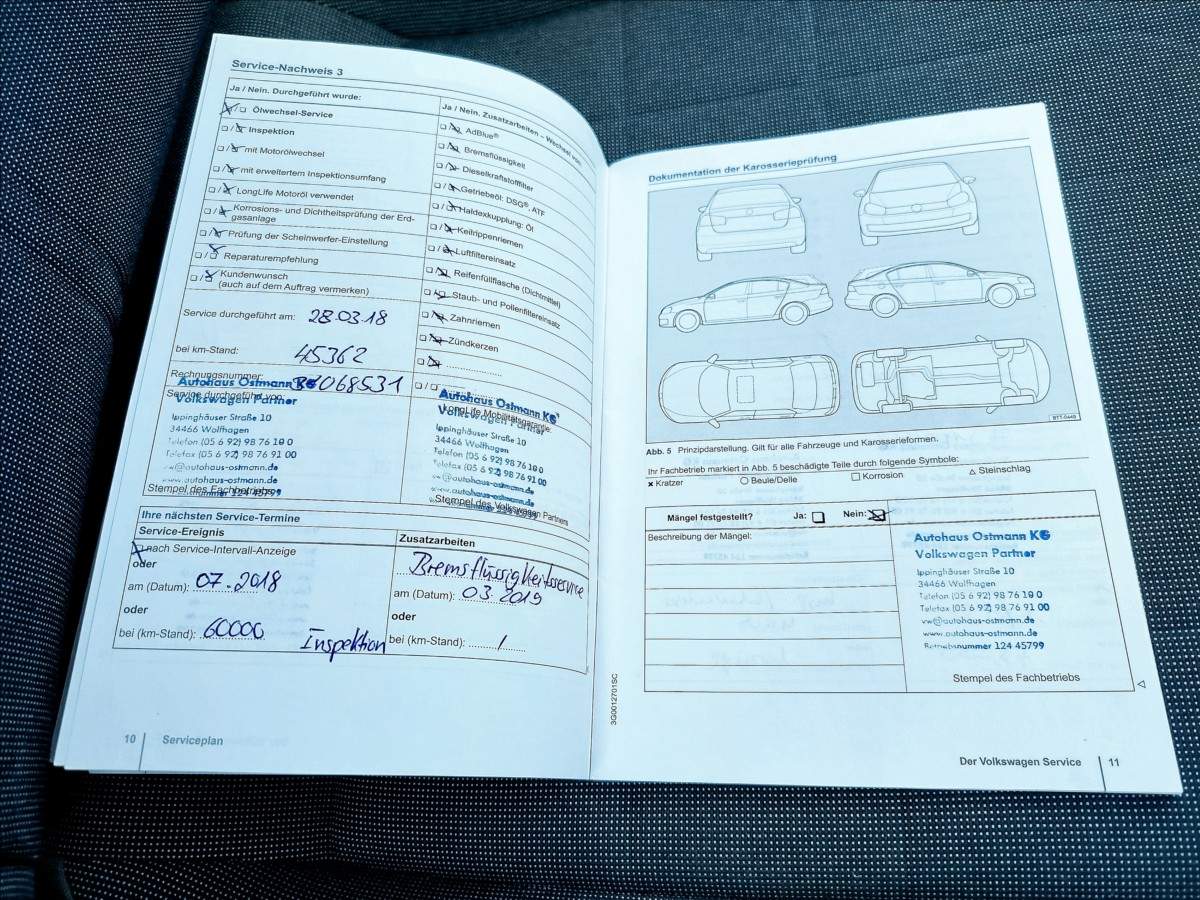 Service-Nachweis 3
Ja / Nein. Durchgeführt wurde:
☒/☐ Ölwechsel-Service
☐/☒ Inspektion
☐/☒ mit Motorölwechsel
☐/☒ mit erweitertem Inspektionsumfang
☐/☒ LongLife Motoröl verwendet
☐/☒ Korrosions- und Dichtheitsprüfung der Erd-
gasanlage
☐/☒ Prüfung der Scheinwerfer-Einstellung
☐/☒ Reparaturempfehlung
☐/☒ Kundenwunsch
(auch auf dem Auftrag vermerken)
Service durchgeführt am: 28.03.18
bei km-Stand: 45362
Rechnungsnummer: 068531
Service durchgeführt von:
Autohaus Ostmann KG
Volkswagen Partner
Ippinghäuser Straße 10
34466 Wolfhagen
Telefon (05 6 92) 98 76 10 0
Telefax (05 6 92) 98 76 91 00
vw@autohaus-ostmann.de
www.autohaus-ostmann.de
Stempel des Fachbetriebs
124 45799
Ja / Nein. Zusatzarbeiten – Wechsel von:
☐/☒ AdBlue®
☐/☒ Bremsflüssigkeit
☐/☒ Dieselkraftstofffilter
☐/☒ Getriebeöl: DSG®, ATF
☐/☒ Haldexkupplung: Öl
☐/☒ Keilrippenriemen
☐/☒ Luftfiltereinsatz
☐/☒ Reifenfüllflasche (Dichtmittel)
☐/☒ Staub- und Pollenfiltereinsatz
☐/☒ Zahnriemen
☐/☒ Zündkerzen
☐/☒
☐/☐
LongLife Mobilitätsgarantie:
Autohaus Ostmann KG
Volkswagen Partner
Ippinghäuser Straße 10
34466 Wolfhagen
Telefon (05 6 92) 98 76 10 0
Telefax (05 6 92) 98 76 91 00
vw@autohaus-ostmann.de
www.autohaus-ostmann.de
Stempel des Volkswagen Partners
Ihre nächsten Service-Termine
Service-Ereignis
☒ nach Service-Intervall-Anzeige
oder
am (Datum): 07.2018
oder
bei (km-Stand): 60000 Inspektion
Zusatzarbeiten
Bremsflüssigkeitsservice
am (Datum): 03.2019
oder
bei (km-Stand): /
10 Serviceplan
3G0012701SC
Dokumentation der Karosserieprüfung
BTT-0449
Abb. 5 Prinzipdarstellung. Gilt für alle Fahrzeuge und Karosserieformen.
Ihr Fachbetrieb markiert in Abb. 5 beschädigte Teile durch folgende Symbole:
× Kratzer ○ Beule/Delle □ Korrosion △ Steinschlag
Mängel festgestellt? Ja: ☐ Nein: ☒
Beschreibung der Mängel:
Autohaus Ostmann KG
Volkswagen Partner
Ippinghäuser Straße 10
34466 Wolfhagen
Telefon (05 6 92) 98 76 10 0
Telefax (05 6 92) 98 76 91 00
vw@autohaus-ostmann.de
www.autohaus-ostmann.de
Betriebsnummer 124 45799
Stempel des Fachbetriebs
Der Volkswagen Service 11